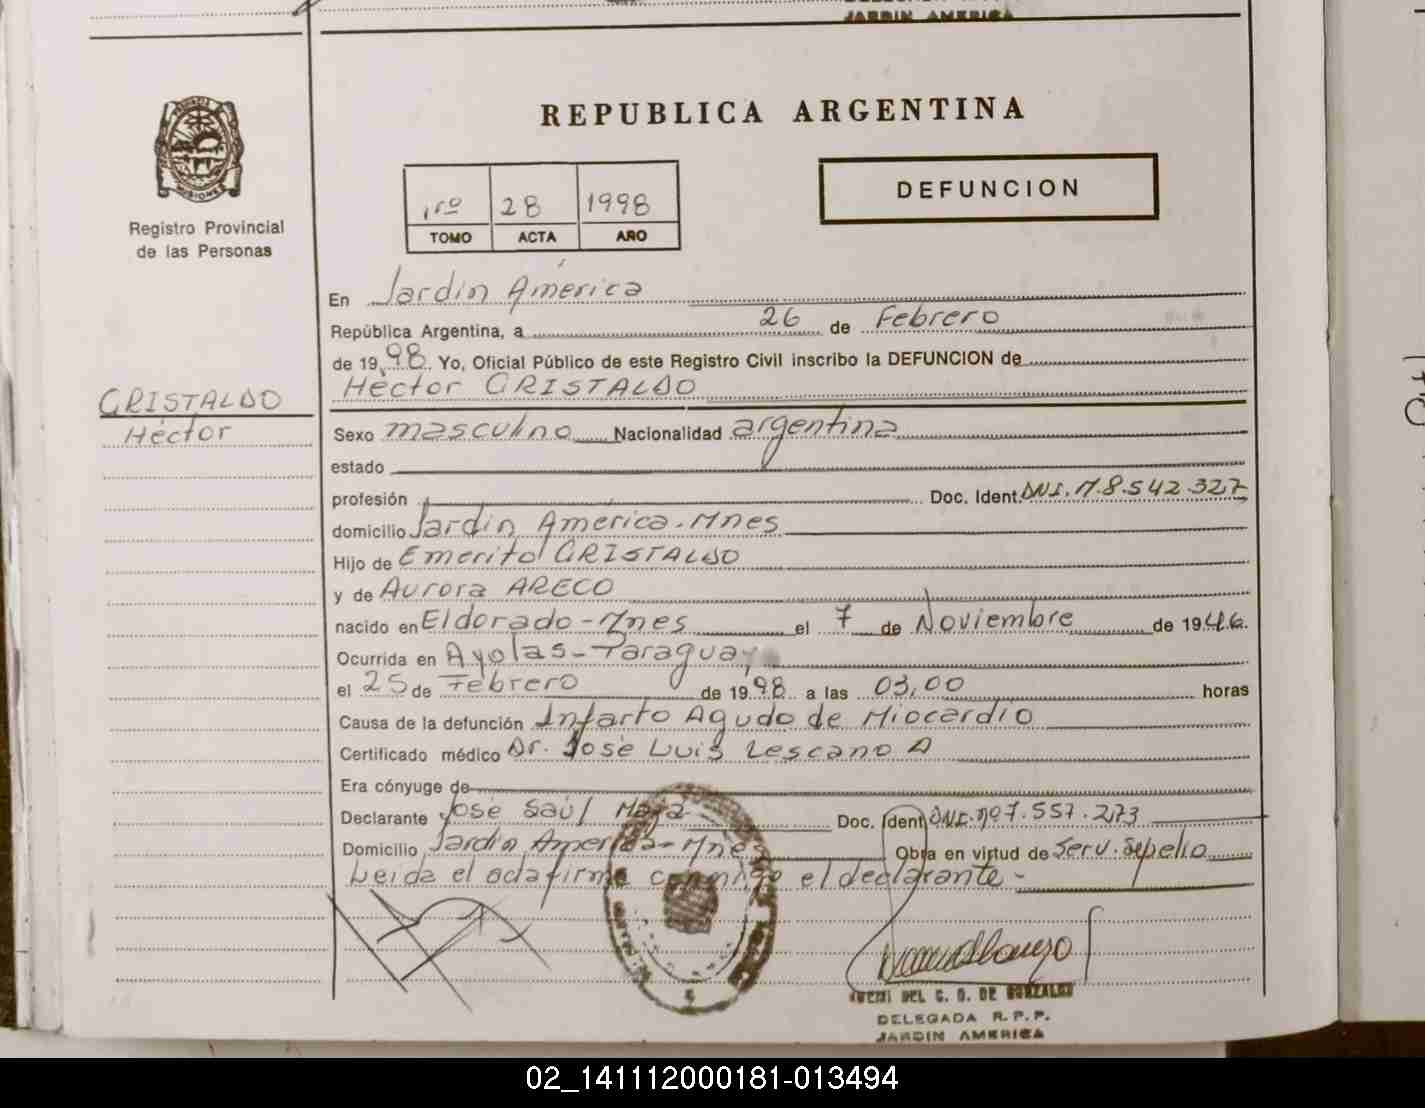 JARDIN AMERICA
REPUBLICA ARGENTINA
1ro 28 1998
TOMO ACTA AÑO
DEFUNCION
MISIONES
Registro Provincial
de las Personas
En Jardín América
República Argentina, a 26 de Febrero
de 1998. Yo, Oficial Público de este Registro Civil inscribo la DEFUNCION de
Héctor CRISTALDO
CRISTALDO
Héctor
Sexo masculino Nacionalidad argentina
estado
profesión Doc. Ident. DNI. M.8.542.327
domicilio Jardín América-Mnes
Hijo de Emerito CRISTALDO
y de Aurora ARECO
nacido en Eldorado-Mnes el 7 de Noviembre de 1946.
Ocurrida en Ayolas-Paraguay
el 25 de Febrero de 1998 a las 03,00 horas
Causa de la defunción Infarto Agudo de Miocardio
Certificado médico Dr. José Luis Lescano A
Era cónyuge de
Declarante José Saúl Doc. Ident. DNI. Nº7.557.273
Domicilio Jardín América-Mnes Obra en virtud de Serv. Sepelio
Leída el acta firma conmigo el declarante-
DEL C. G. DE GONZALEZ
DELEGADA R.P.P.
JARDIN AMERICA
02_141112000181-013494